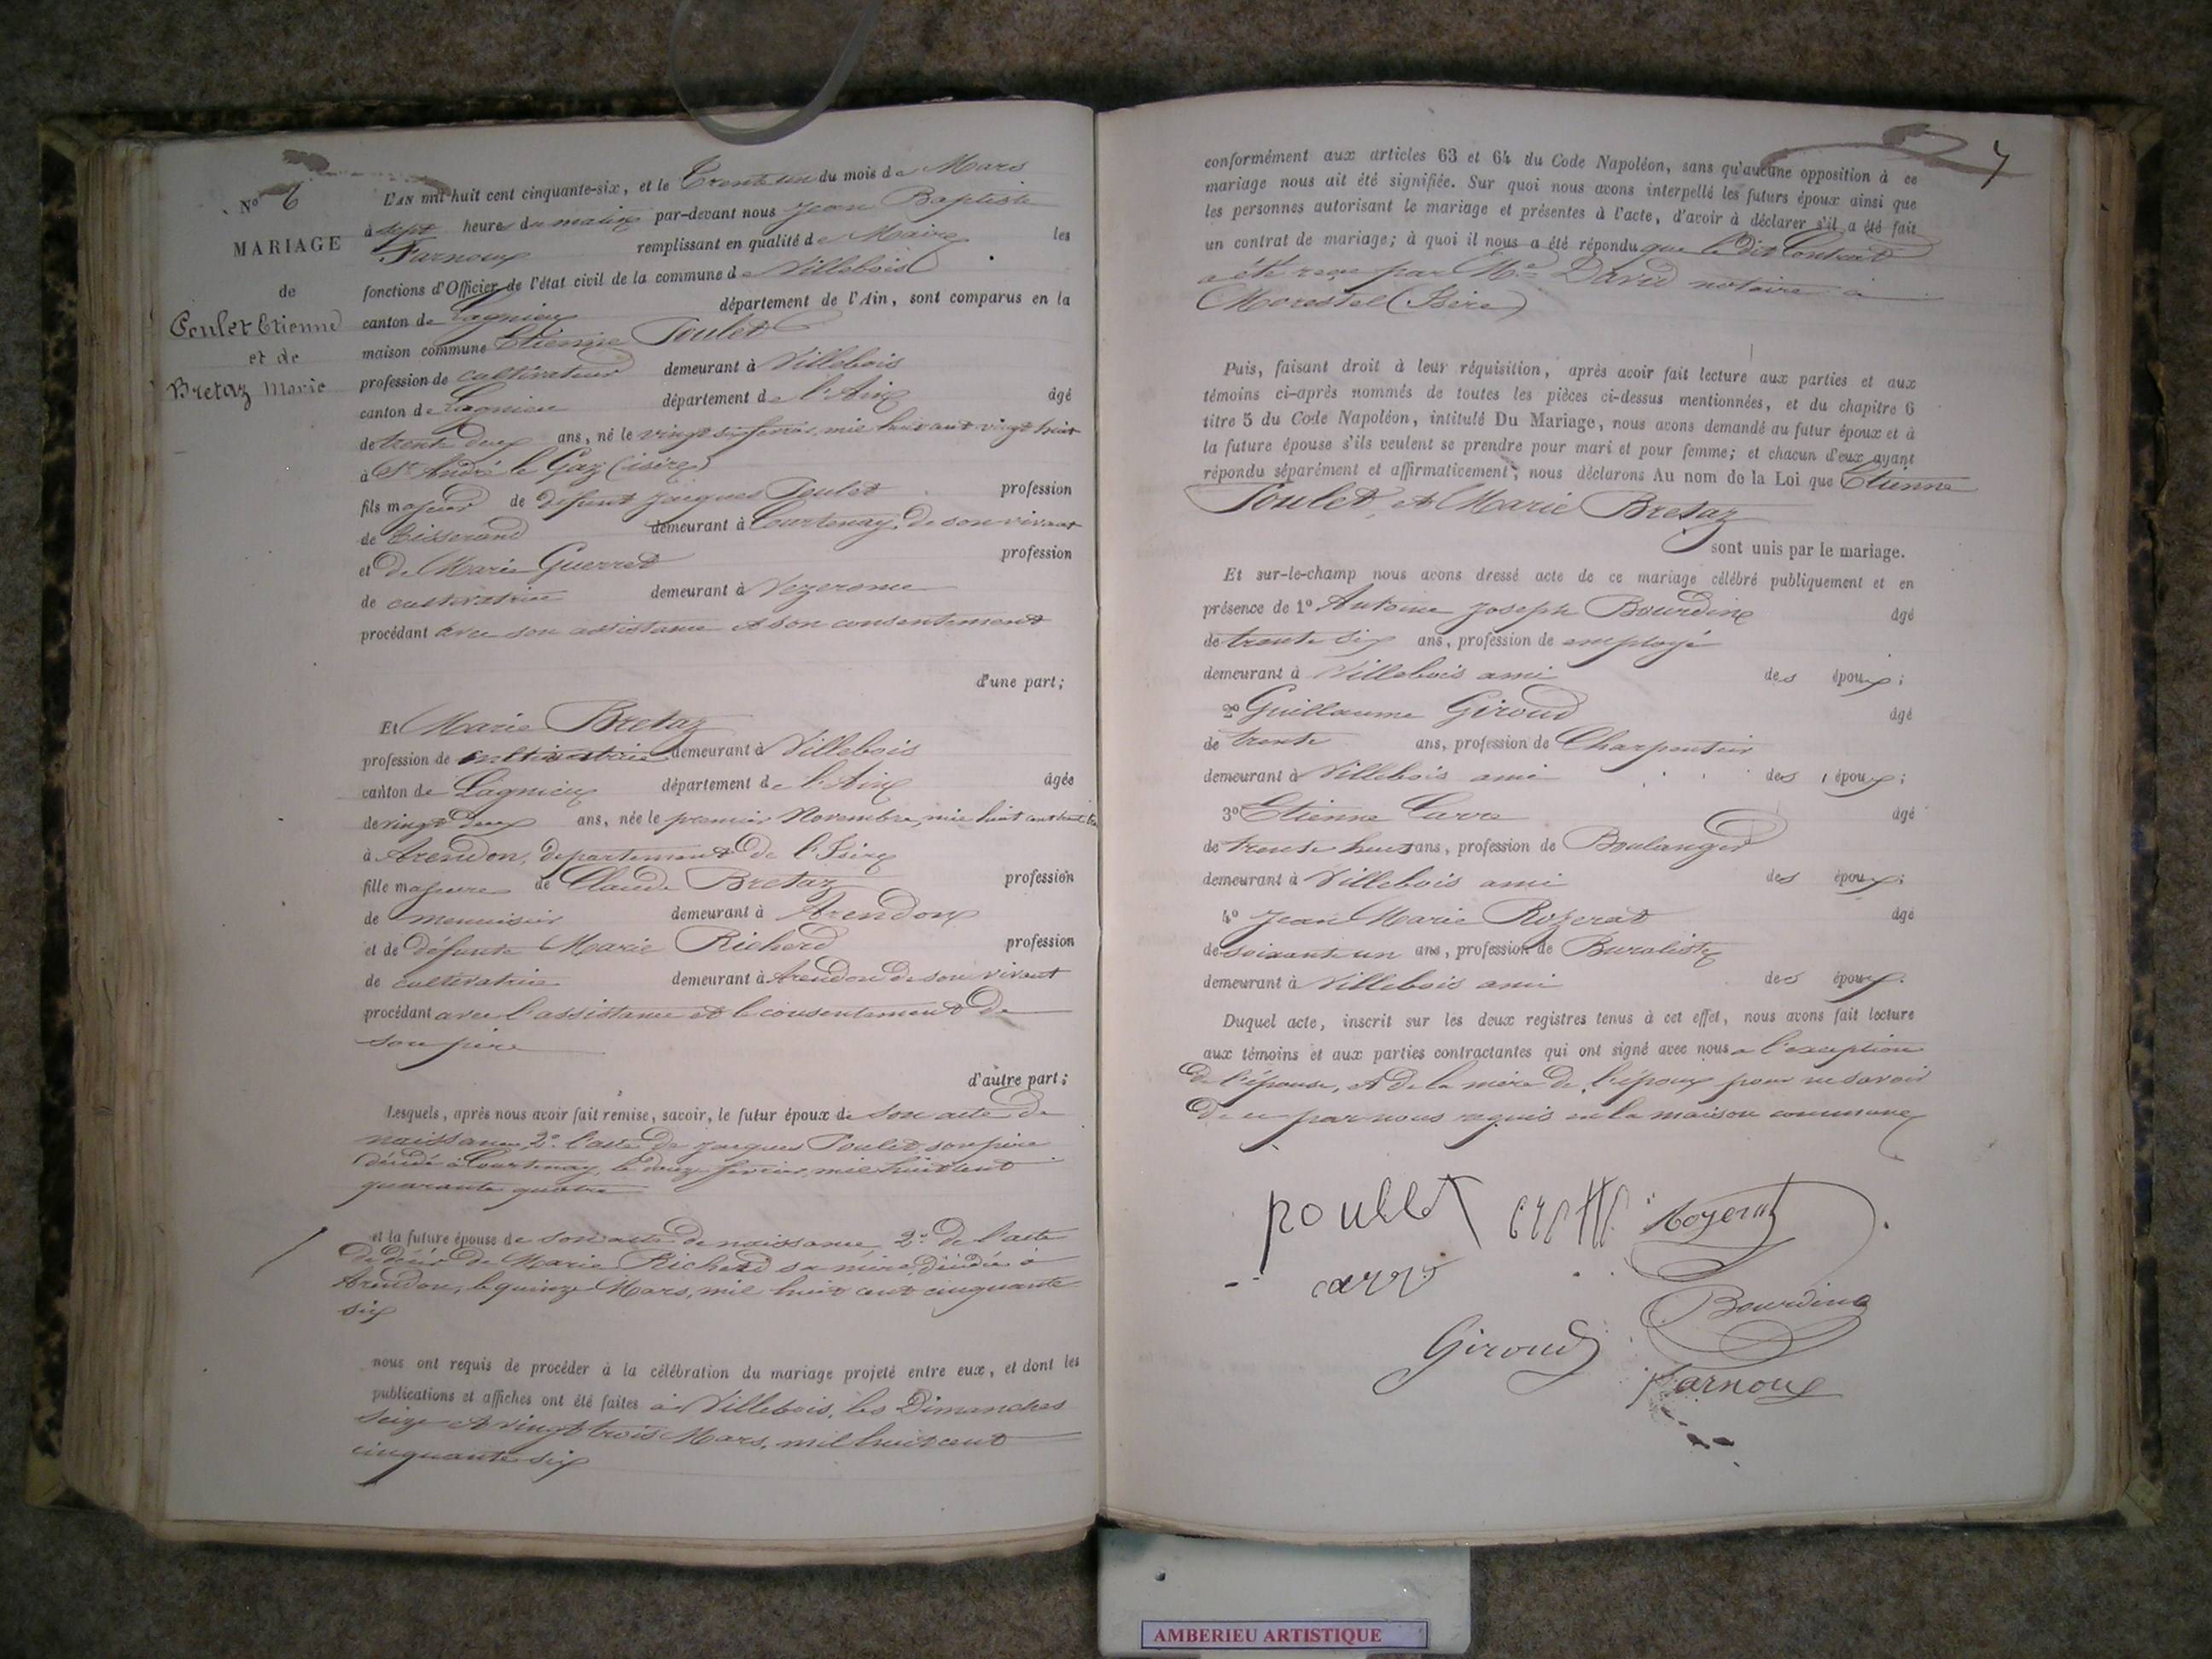 N° 6
MARIAGE
de
Poulet Etienne
et de
Bretaz Marie
L'AN mil huit cent cinquante-six, et le Trente un du mois de Mars
à sept heures du matin par-devant nous Jean Baptiste
Farnoux remplissant en qualité de Maire les
fonctions d'Officier de l'état civil de la commune de Villebois
canton de Lagnieu département de l'Ain, sont comparus en la
maison commune Etienne Poulet
profession de cultivateur demeurant à Villebois
canton de Lagnieu département de l'Ain âgé
de trente deux ans, né le vingt six février, mil huit cent vingt huit
à St André le Gaz (isère)
fils majeur de défunt Jacques Poulet profession
de tisserand demeurant à Courtenay, de son vivant
et de Marie Guerret profession
de cultivatrice demeurant à Vezeronce
procédant avec son assistance et son consentement
d'une part;
Et Marie Bretaz
profession de cultivatrice demeurant à Villebois
canton de Lagnieu département de l'Ain âgée
de vingt deux ans, née le premier Novembre, mil huit cent
à Arendon, département de l'Isère
fille majeure de Claude Bretaz profession
de menuisier demeurant à Arendon
et de défunte Marie Richerd profession
de cultivatrice demeurant à Arendon de son vivant
procédant avec l'assistance et le consentement de
son père
d'autre part;
Lesquels, après nous avoir fait remise, savoir, le futur époux de son acte de
naissance, 2° l'acte de Jacques Poulet, son père
décédé à Courtenay, le douze février, mil huit cent
quarante quatre
et la future épouse de son acte de naissance, 2° de l'acte
de décès de Marie Richerd sa mère, décédée à
Arendon, le quinze Mars, mil huit cent cinquante
six
nous ont requis de procéder à la célébration du mariage projeté entre eux, et dont les
publications et affiches ont été faites à Villebois, les Dimanches
seize et vingt trois Mars, mil huit cent
cinquante six
7
conformément aux articles 63 et 64 du Code Napoléon, sans qu'aucune opposition à ce
mariage nous ait été signifiée. Sur quoi nous avons interpellé les futurs époux ainsi que
les personnes autorisant le mariage et présentes à l'acte, d'avoir à déclarer s'il a été fait
un contrat de mariage; à quoi il nous a été répondu que le dit Contrat
a été reçu par Me David notaire à
Morestel (Isère)
Puis, faisant droit à leur réquisition, après avoir fait lecture aux parties et aux
témoins ci-après nommés de toutes les pièces ci-dessus mentionnées, et du chapitre 6
titre 5 du Code Napoléon, intitulé Du Mariage, nous avons demandé au futur époux et à
la future épouse s'ils veulent se prendre pour mari et pour femme; et chacun d'eux ayant
répondu séparément et affirmativement, nous déclarons Au nom de la Loi que Etienne
Poulet, et Marie Bretaz
sont unis par le mariage.
Et sur-le-champ nous avons dressé acte de ce mariage célébré publiquement et en
présence de 1° Antoine Joseph Bourdin âgé
de trente six ans, profession de employé
demeurant à Villebois ami des époux;
2° Guillaume Giroud âgé
de trente ans, profession de Charpentier
demeurant à Villebois ami des époux;
3° Etienne Carre âgé
de trente huit ans, profession de Boulanger
demeurant à Villebois ami des époux;
4° Jean Marie Rozerat âgé
de soixante un ans, profession de Buraliste
demeurant à Villebois ami des époux.
Duquel acte, inscrit sur les deux registres tenus à cet effet, nous avons fait lecture
aux témoins et aux parties contractantes qui ont signé avec nous a l'exception
de l'épouse, et de la mère de l'époux pour ne savoir
de ce par nous requis en la maison commune
poullet
Bourdin
Giroud
Farnoux
AMBERIEU ARTISTIQUE